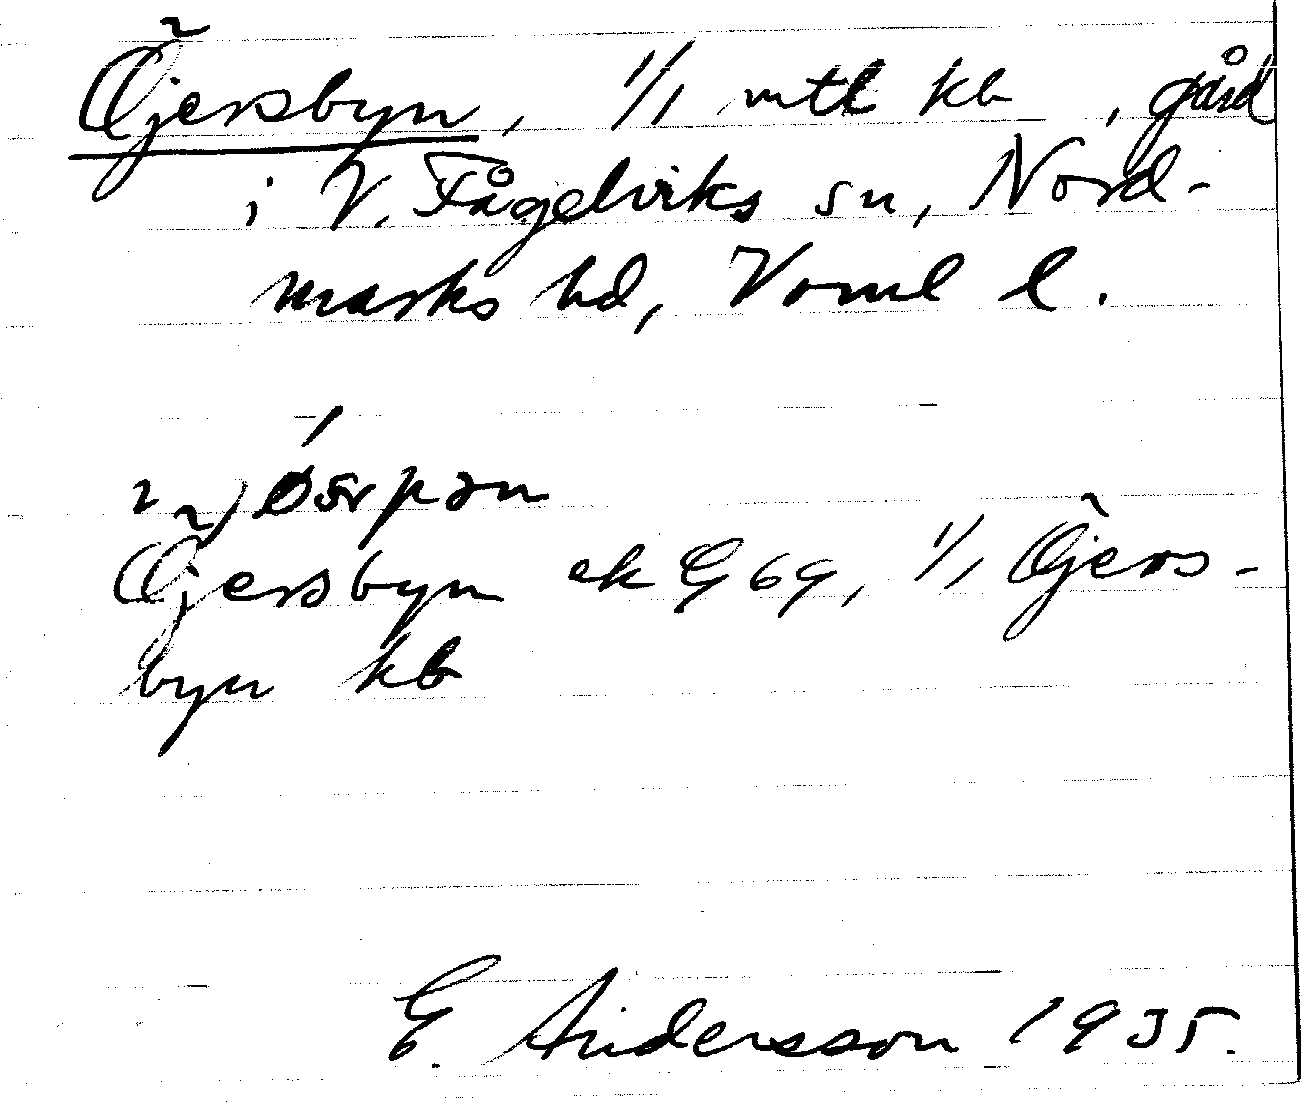 Öjersbyn, 1/1 mtl kb, gård
i V. Fågelviks sn, Nord-
marks hd, Vorml l.
Öjersbyn ek G 69, 1/1 Öjers-
byn kb
E. Andersson 1935.